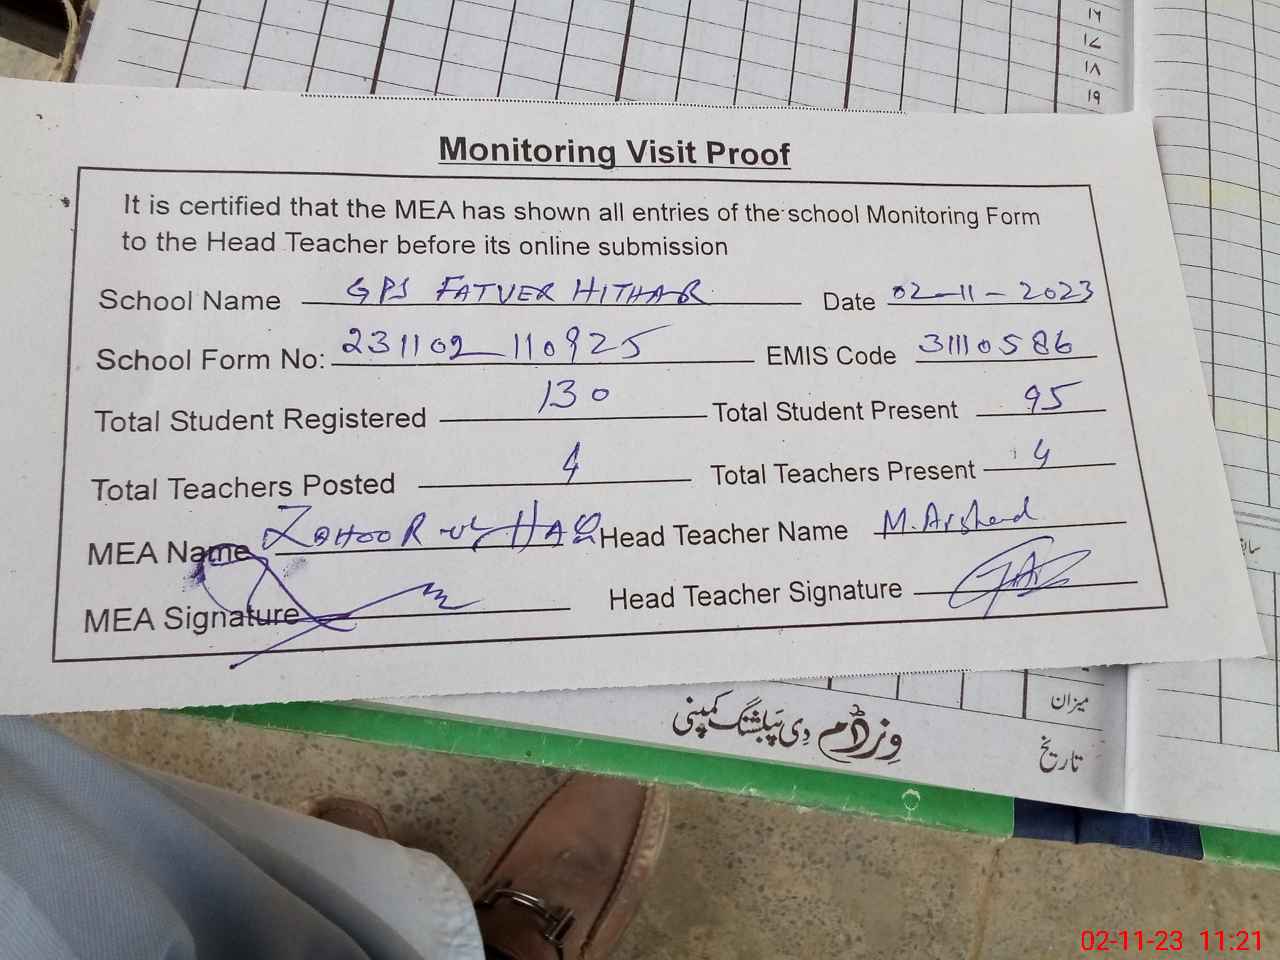 ١٦
١٧
١٨
١٩
Monitoring Visit Proof
It is certified that the MEA has shown all entries of the school Monitoring Form
to the Head Teacher before its online submission
School Name GPS FATUER HITHAR Date 02-11-2023
School Form No: 231102_110925 EMIS Code 31110586
Total Student Registered 130 Total Student Present 95
Total Teachers Posted 4 Total Teachers Present 4
MEA Name ZAHOOR-UL-HAQ Head Teacher Name M. Arshad
MEA Signature Head Teacher Signature
میزان
تاریخ
وزڈم دی پبلشنگ کمپنی
02-11-23 11:21